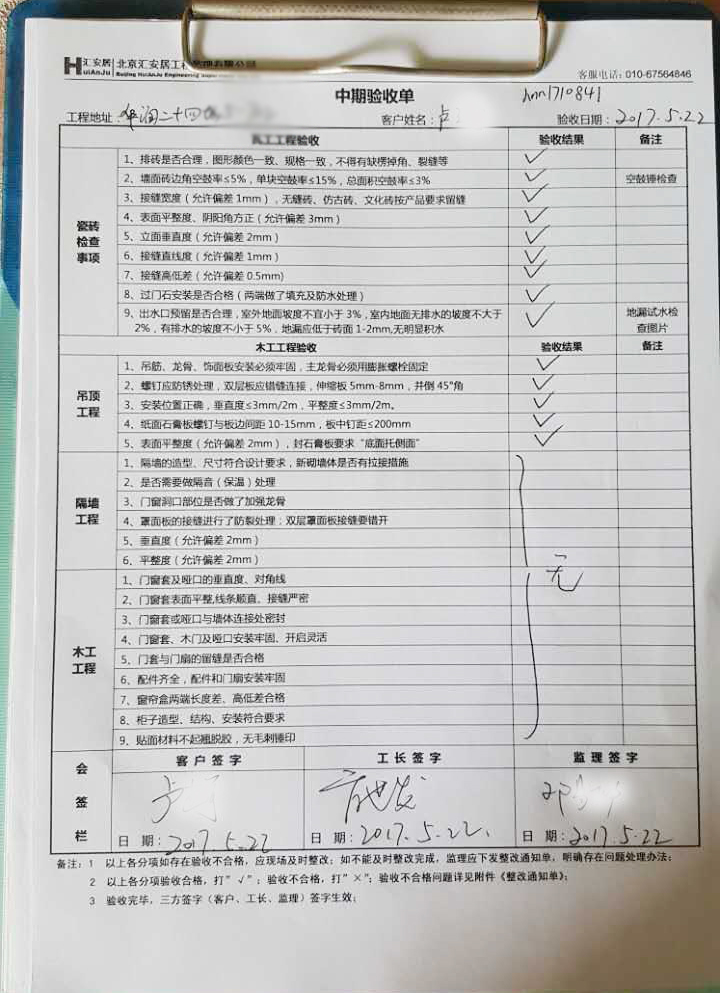 汇安居 北京汇安居工程
HuiAnJu Beijing HuiAnJu Engineering
客服电话：010-67564846
中期验收单
hnn1710841
工程地址：华润二十四 客户姓名：卢 验收日期：2017.5.22
瓦工工程验收 验收结果 备注
瓷砖检查事项
1、排砖是否合理，图形颜色一致、规格一致，不得有缺楞掉角、裂缝等 ✓
2、墙面砖边角空鼓率≤5%，单块空鼓率≤15%，总面积空鼓率≤3% ✓ 空鼓锤检查
3、接缝宽度（允许偏差 1mm），无缝砖、仿古砖、文化砖按产品要求留缝 ✓
4、表面平整度、阴阳角方正（允许偏差 3mm） ✓
5、立面垂直度（允许偏差 2mm） ✓
6、接缝直线度（允许偏差 1mm） ✓
7、接缝高低差（允许偏差 0.5mm) ✓
8、过门石安装是否合格（两端做了填充及防水处理） ✓
9、出水口预留是否合理，室外地面坡度不宜小于 3%，室内地面无排水的坡度不大于 ✓ 地漏试水检
2%，有排水的坡度小于 5%．地漏应低于砖面 1-2mm,无明显积水 查图片
木工工程验收 验收结果 备注
吊顶工程
1、吊筋、龙骨、饰面板安装必须牢固，主龙骨必须用膨胀螺栓固定 ✓
2、螺钉应防锈处理，双层板应错缝连接，伸缩板 5mm-8mm，并倒 45°角 ✓
3、安装位置正确，垂直度≤3mm/2m，平整度≤3mm/2m。 ✓
4、纸面石膏板螺钉与板边间距 10-15mm，板中钉距≤200mm ✓
5、表面平整度（允许偏差 2mm），封石膏板要求“底面托侧面” ✓
隔墙工程
1、隔墙的造型、尺寸符合设计要求，新砌墙体是否有拉接措施
2、是否需要做隔音（保温）处理
3、门窗洞口部位是否做了加强龙骨
4、罩面板的接缝进行了防裂处理；双层罩面板接缝要错开
5、垂直度（允许偏差 2mm）
6、平整度（允许偏差 2mm）
无
木工工程
1、门窗套及哑口的垂直度、对角线
2、门窗套表面平整,线条顺直、接缝严密
3、门窗套或哑口与墙体连接处密封
4、门窗套、木门及哑口安装牢固、开启灵活
5、门套与门扇的留缝是否合格
6、配件齐全，配件和门扇安装牢固
7、窗帘盒两端长度差、高低差合格
8、柜子造型、结构、安装符合要求
9、贴面材料不起翘脱胶，无毛刺锤印
会签栏
客户签字 工长签字 监理签字
日 期：2017.5.22 日 期：2017.5.22. 日 期：2017.5.22
备注：1 以上各分项如存在验收不合格，应现场及时整改；如不能及时整改完成，监理应下发整改通知单，明确存在问题处理办法；
2 以上各分项验收合格，打”√”；验收不合格，打”×”；验收不合格问题详见附件《整改通知单》；
3 验收完毕，三方签字（客户、工长、监理）签字生效；